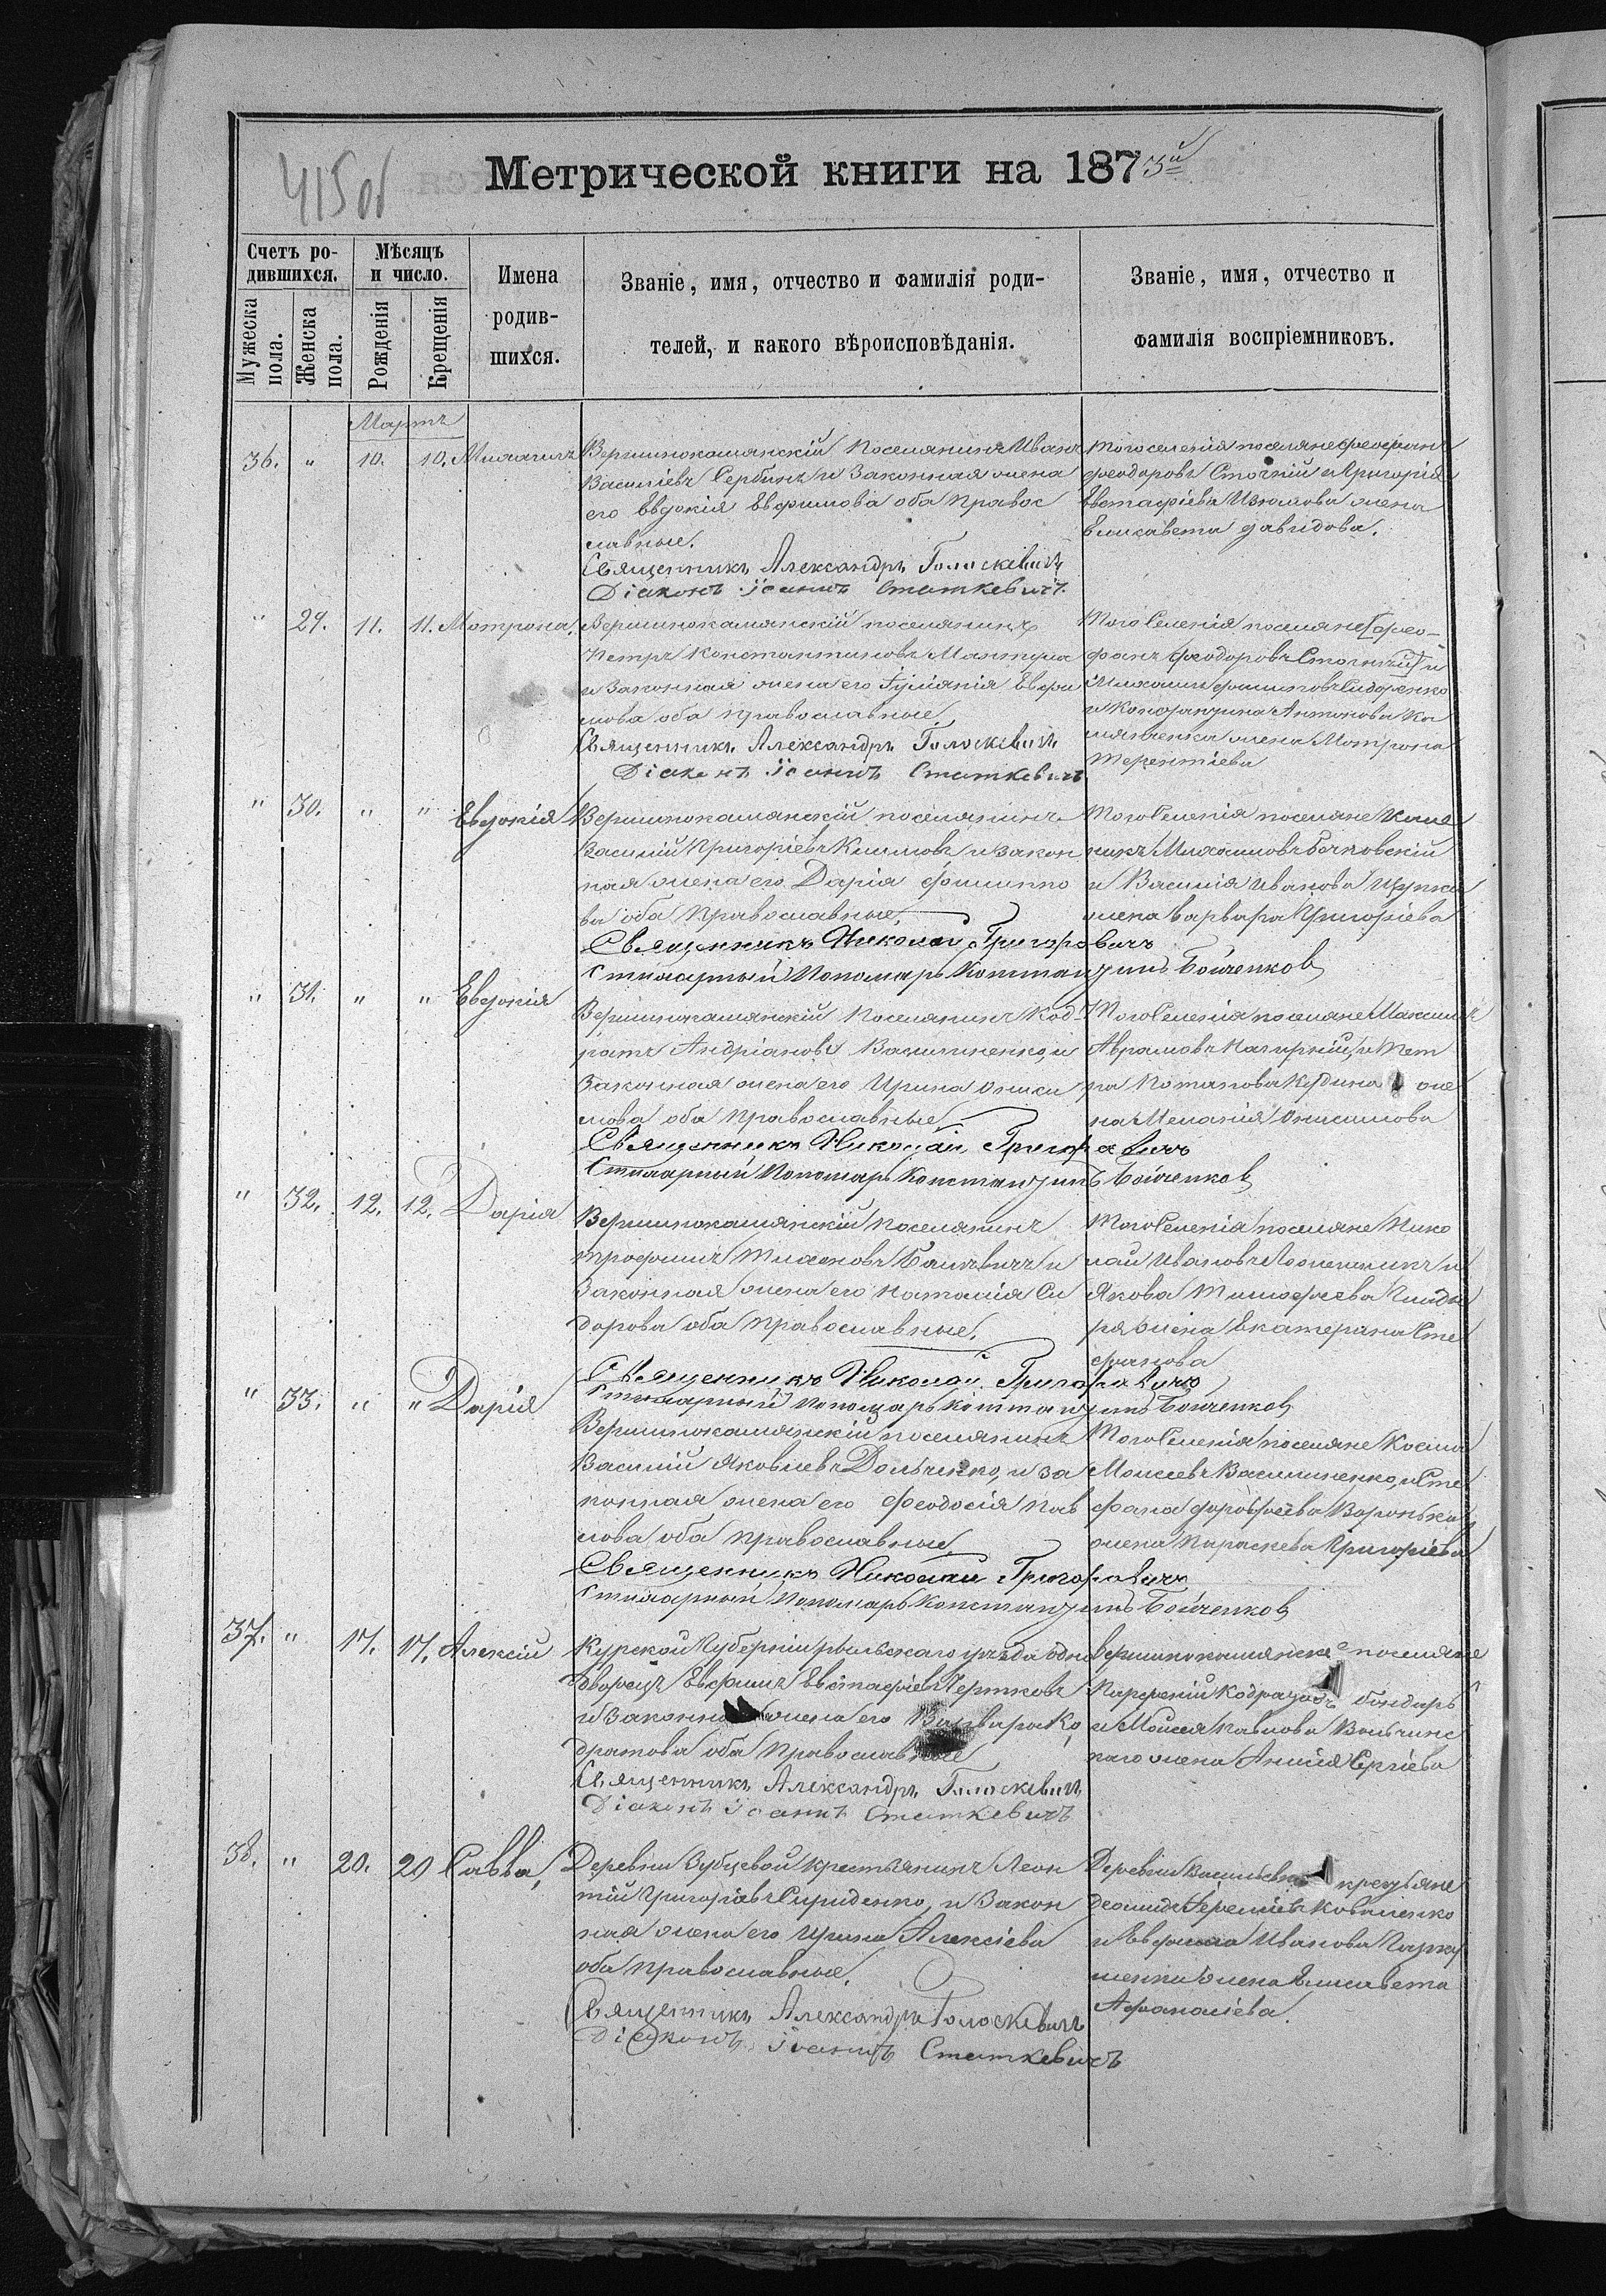 415 об
Метрической книги на 1873й
Счетъ ро-
дившихся.
Мѣсяцъ
и число.
Имена
родив-
шихся.
Званіе, имя, отчество и фамилія роди-
телей, и какого вѣроисповѣданія.
Званіе, имя, отчество и
фамилія воспріемниковъ.
Мужеска
пола.
Женска
пола.
Рожденія
Крещенія
Мартъ
36. " 10. 10. Михаилъ
Вершинокамянскій поселянинъ Иванъ
Василіевъ Сербинъ и законная жена
его Евдокія Евфимова оба правос
лавные.
Священникъ Александръ Голоскевичъ
Діаконъ Іоаннъ Статкевичъ.
Того селенія поселяне Феофанъ
Феодоровъ Стогній и Григорія
Евстафіева Изюмова жена
Елисавета Давидова.
" 29. 11. 11. Матрона,
Вершинокамянскій поселянинъ
Петръ Константиновъ Мантула
и законная жена его Іуліанія Евфи
мова оба православные,
Священникъ Александръ Голоскевичъ
Діаконъ Іоаннъ Статкевичъ
Того селенія поселяне [Фео-
фанъ Феодоровъ Стогный] и
Михаилъ Филиповъ Сидоренко
и Константина Антонова Ка
жена Матрона
Терентіева
" 30. " " Евдокія
Вершинокамянскій поселянинъ
Василій Григоріевъ Климовъ и закон
ная жена его Дарія Филиппо
ва оба православные,
Священникъ Николай Григоровичъ
Стихарный Пономарь Константинъ Бойченков
Того селенія поселяне
Михаиловъ Бочковскій
и Василія Иванова
жена Варвара Григоріева
" 31. " " Евдокія
Вершинокамянскій поселянинъ Код-
ратъ Андріановъ Василиненко, и
законная жена его Ирина Ониси
мова оба православные
Священникъ Николай Григоровичъ
Стихарный Пономарь Константинъ Бойченков
Того селенія поселяне Максимъ
Аврамовъ Нагирній, и Пет
ра Потапова же
на Меланія Онисимова
" 32. 12. 12. Дарія
Вершинокамянскій поселянинъ
Трофимъ и
законная жена его Наталія Си
дорова оба православные.
Священникъ Николай Григоровичъ
Стихарный Пономарь Константинъ Бойченков
Того селенія поселяне Нико
лай Ивановъ и
Якова Тимофеева
ря жена Екатерина Сте
фанова
" 33. " " Дарія
Вершинокамянскій поселянинъ
Василій Яковлевъ Дольченко, и за
конная жена его Феодосія Пав
лова оба православные
Священникъ Николай Григоровичъ
Стихарный Пономарь Константинъ Бойченков
Того селенія поселяне Косма
Моисеевъ Василиненко, и Сте
фана Дорофеева Воронька
жена Параскева Григоріева
37. " 17. 17. Алексій
Курской Губерніи Рыльскаго уѣзда одно
дворецъ Евфимъ Евстафіевъ Чертковъ
и законная жена его Варвара Ко
дратова оба православные
Священникъ Александръ Голоскевичъ
Діаконъ Іоаннъ Статкевичъ
Вершинокамянскіе поселяне
Парфеній Кодратовъ Бондарь
и Моисея Павлова Вольчинс
каго жена Анисія Сергіева
38. " 20. 20 Савва,
Деревни Зубцевой крестьянинъ Леон
тій Григоріевъ Спириденко, и закон
ная жена его Ирина Алексіева
оба православные.
Священникъ Александръ Голоскевичъ
Діаконъ Іоаннъ Статкевичъ
Деревни крестьяне
Леонидъ Іереміевъ Коваленко
и Евфима Иванова
жена Елисавета
Афанасіева.